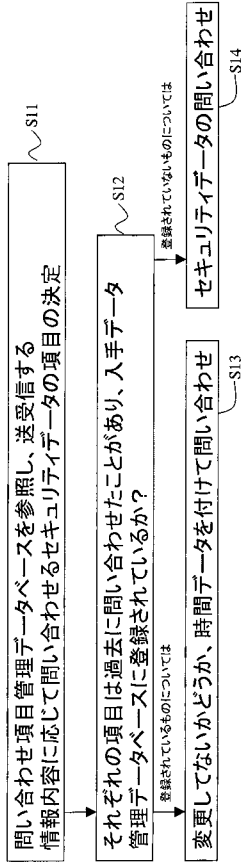 問い合わせ項目管理データベースを参照し、送受信する
情報内容に応じて問い合わせるセキュリティデータの項目の決定
S11
それぞれの項目は過去に問い合わせたことがあり、入手データ
管理データベースに登録されているか？
S12
登録されているものについては
登録されていないものについては
変更してないかどうか、時間データを付けて問い合わせ
S13
セキュリティデータの問い合わせ
S14